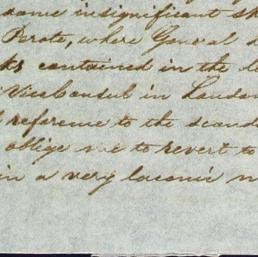 some insignificant sk
Perote, where General d
ks contained in the l
Vice Consul in London
reference to the scanda
oblige me to revert to
in a very laconic n